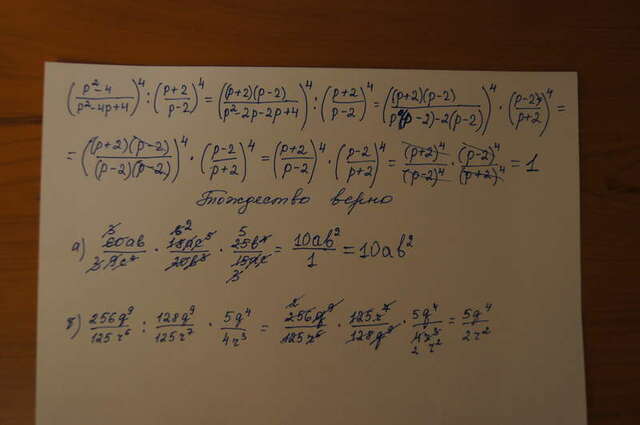 (p²-4/p²-4p+4)⁴ : (p+2/p-2)⁴ = ((p+2)(p-2)/p²-2p-2p+4)⁴ : (p+2/p-2)⁴ = ((p+2)(p-2)/p(p-2)-2(p-2))⁴ · (p-2/p+2)⁴ =
= ((p+2)(p-2)/(p-2)(p-2))⁴ · (p-2/p+2)⁴ = (p+2/p-2)⁴ · (p-2/p+2)⁴ = (p+2)⁴/(p-2)⁴ · (p-2)⁴/(p+2)⁴ = 1
Тождество верно
а) = 10ab²/1 = 10ab²
б) 256q⁹/125r⁶ : 128q⁹/125r⁷ · 5q⁴/4r³ = 256q⁹/125r⁶ · 125r⁷/128q⁹ · 5q⁴/4r³ = 5q⁴/2r²